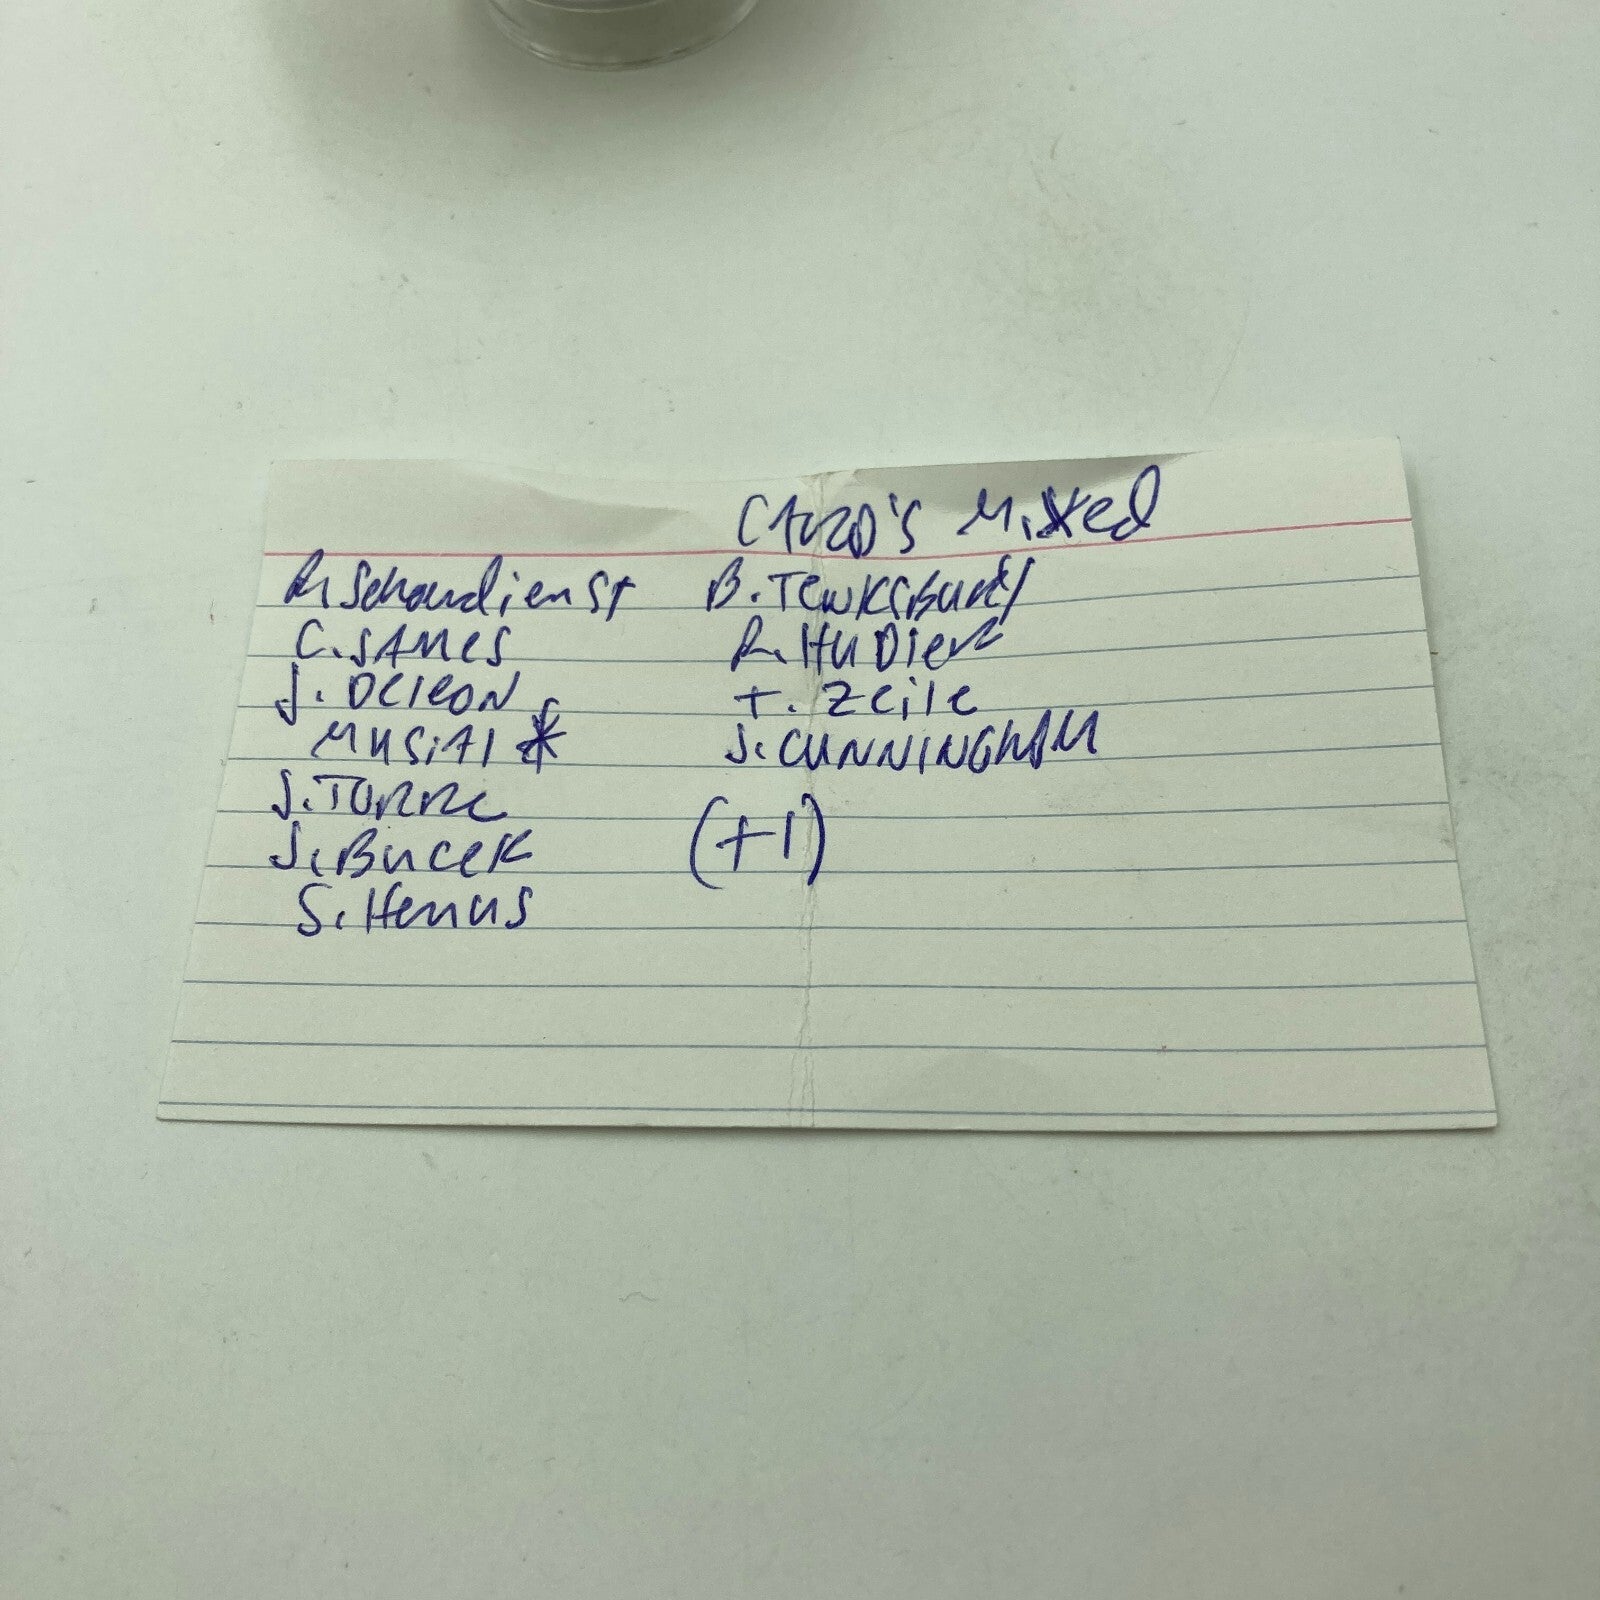 CARD'S Mixed
R. Schoendienst
C. JAMES
J. DELEON
MUSIAl *
J. TORRE
J. BUCEK
S. Hemus
B. TEWKSBURY
R. HUDLER
T. ZEILE
J. CUNNINGHAM
(+1)